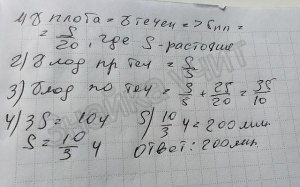 1) V плота = V течен => Vпл =
= S/20, где S - растояние
2) V лод пр теч = S/5
3) V лод по теч = S/5 + 2S/20 = 3S/10
4) 3S = 10ч
S = 10/3 ч
5) 10/3 ч = 200мин
Ответ: 200мин